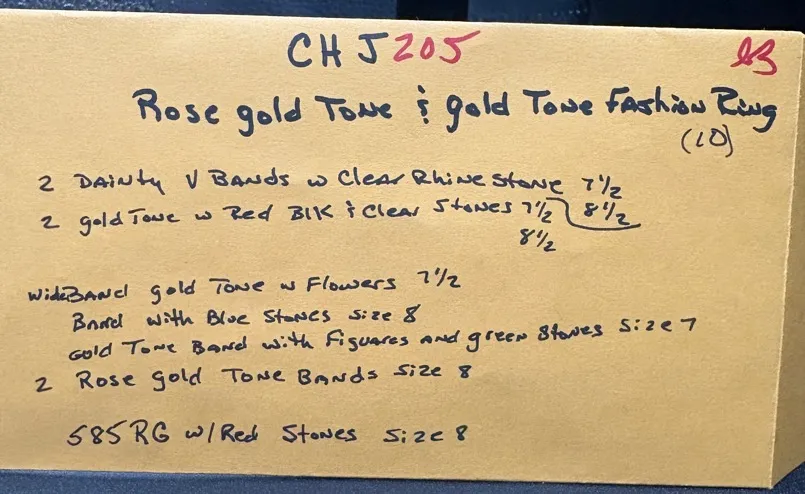 CHJ205
Rose gold Tone & gold Tone Fashion Ring
(10)
2 Dainty V Bands w Clear Rhine Stone 7 1/2
8 1/2
2 gold Tone w Red Blk & Clear Stones 7 1/2
8 1/2
wide Band gold Tone w Flowers 7 1/2
Band with Blue Stones Size 8
Gold Tone Band with Figuares and green Stones Size 7
2 Rose gold Tone Bands Size 8
585 RG w/Red Stones Size 8